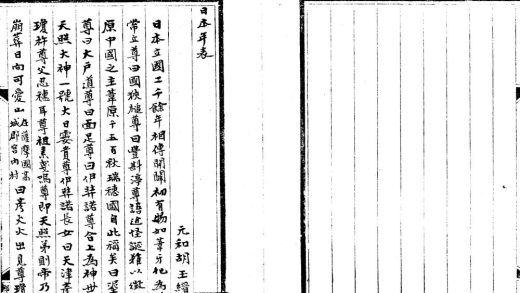 日本年表
元和胡玉縉
日本立國二千餘年相傳開闢初有物如葦牙化為
常立尊曰國狹槌尊曰豐斟渟尊語近怪誕難以徵
原中國之主葦原千五百秋瑞穗國自此矣曰
尊曰大戶道尊曰面足尊曰伊弉諾尊合上為神世
天照大神一號大日孁貴尊伊弉諾長女曰天津彥
瓊杵尊父忍穗耳尊祖素戔嗚尊即天照弟則帝乃
崩葬日向可愛山在薩摩國高城郡宮內村曰彥火火出見尊瓊